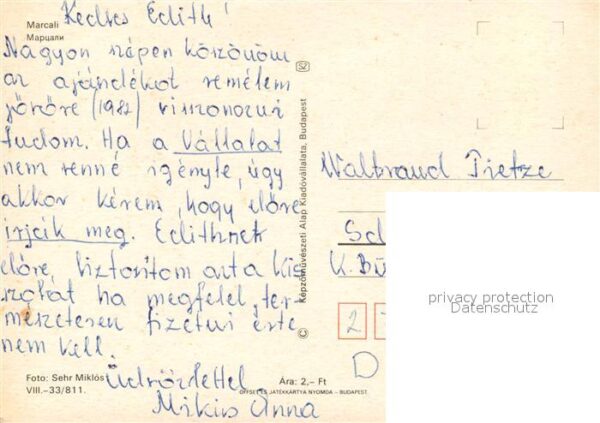 Marcali
Марцали
Kedves Edith!
Nagyon szépen köszönöm
az ajándékot remélem
jövőre (1987) viszonozni
tudom. Ha a Vállalat
nem venné igénybe, úgy
akkor kérem, hogy előre
írják meg. Edithnek
előre, biztosítom azt a kis
szobát ha megfelel, ter-
mészetesen fizetni érte
nem kell.
Üdvözlettel
Mikis Anna
Foto: Sehr Miklós
VIII.–33/811.
Ára: 2,– Ft
OFFSET ÉS JÁTÉKKÁRTYA NYOMDA – BUDAPEST.
© Képzőművészeti Alap Kiadóvállalata, Budapest
SZ
Waltraud Pietze
K. Bü
2
D
privacy protection
Datenschutz